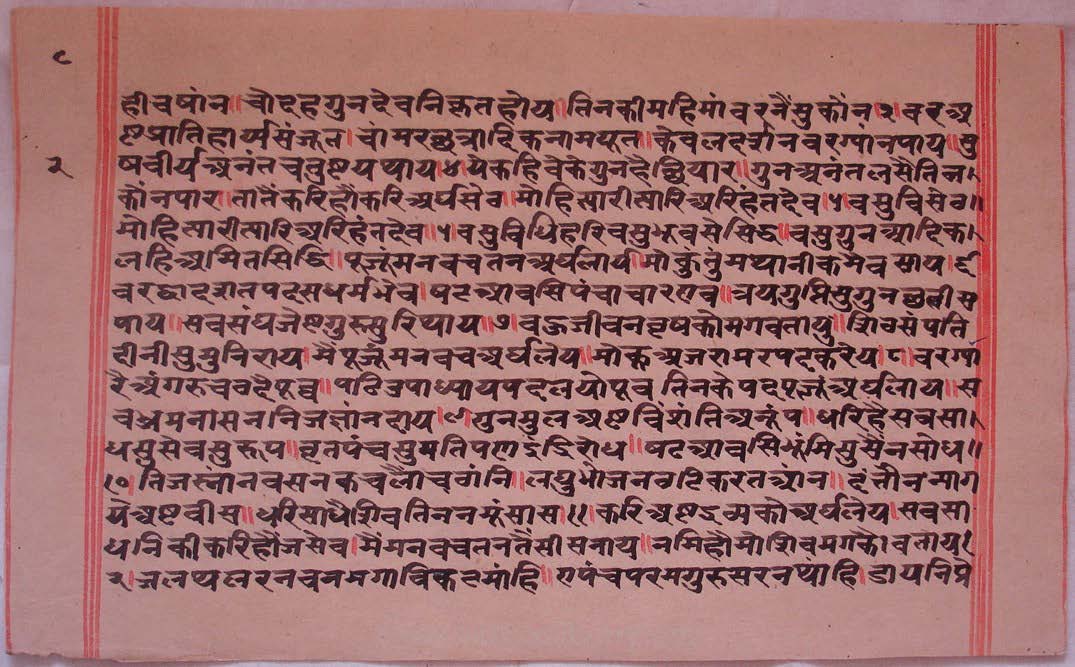 ८
२
हीवषांन॥ चौदहगुनदेवनिकृतहोय॥तिनकीमहिमांवरनैंसुकोंन२॥वरअ
ष्टप्रातिहार्यसंजूत।चांमरछत्रादिकनामयूत॥केवलदर्शनवरग्यांनपाय॥सु
षवीर्यअनंतचतुष्टयथाय॥४॥येकहिवेकेगुनहैछियार॥गुनअनंतलसैतिन।
कौंनपार॥तातैंकरिहौंकरिअर्घसेव॥मोहितारीतारिअरिहंतदेव।५।वसुविसेव॥
मोहितारीतारिअरिहंतदेव॥५॥वसुविधिहरिवसुभुवसेसिद्ध॥वसुगुनआदिक।
लहिअमितसिद्धि॥पूजूंमनवचतनअर्घलाय॥मोकुंतुंमथानीकमैवसाय।६
वरद्वादशतपदसधर्मभेव॥षटआवसिपंचाचारएव॥त्रयगुप्तिसुगुनछत्तीस
पाय॥सवसंघजेष्टगुरुसुरिथाय॥७॥वहुजीवनवृषकोमगवताय॥शिवसंपति
दीनीसुमुनिराय॥मैंपूजूंमनवचअर्घलेय॥मोकूअजरामरपदकरेय॥८॥वरग्या
रैअंगरुचवदैपूव्व॥पाठिउपाध्यायपदलयोपूव तिनकेपदपूजूंअर्घलाय॥स
वभ्रमनासननिजज्ञांनदाय॥९॥गुनमुलअष्टविंशतिअनूंप॥धरिहैसवसा।
धसुसेवसुरूप॥वृतपंचसुमतिपणइंद्रिरोध॥षटआवसिभूंमिसुसैनसोध॥
१०॥तिजस्नांनवसनकचलौंचवांनि॥लघुभोजनवठिकरतआंन॥दंतौंनत्याग
र्यअष्टवीस॥धरिसाधैशिवतिननमूंसीस११॥करिअष्टद्रव्यकोअर्घलेय॥सवसा
धनिकीकरिहौंजसेव॥मैंमनवचतनतैंसीसनाय॥नमिहौंमोशिवमगकोवताय१
२॥जलथलरनवनमगविकटमांहि॥एपंचपरमगुरुसरनथांहि॥डायनिप्रे